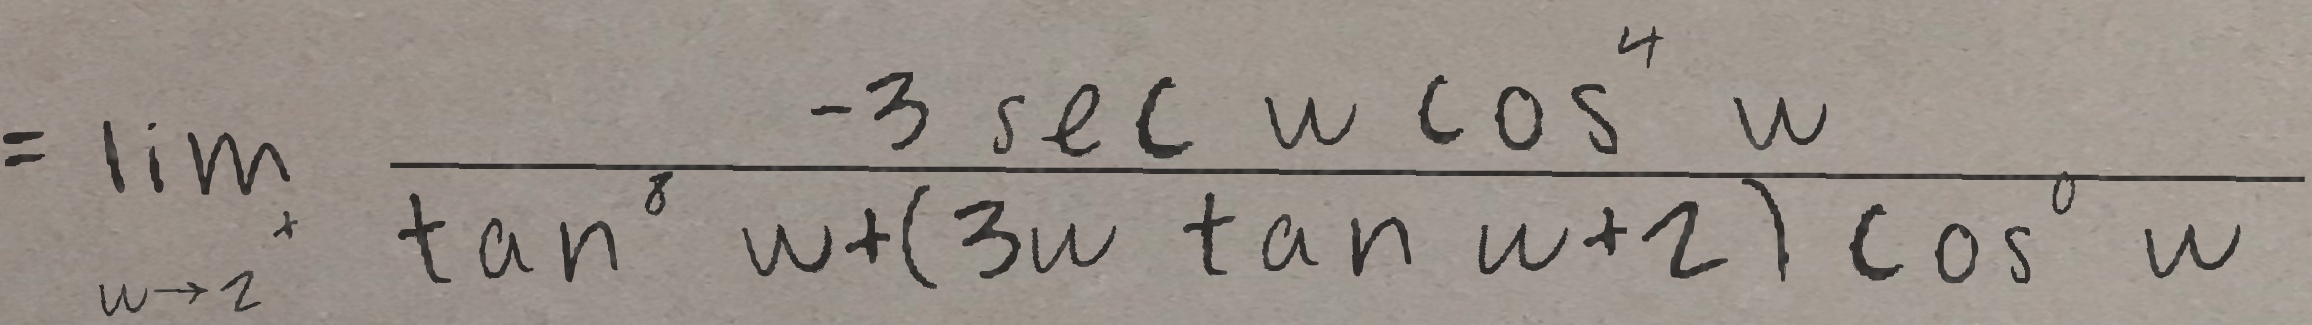 = \lim_{w \to 2^+} \frac{-3 \sec w \cos^4 w}{\tan^8 w + (3w \tan w + 2) \cos^0 w}